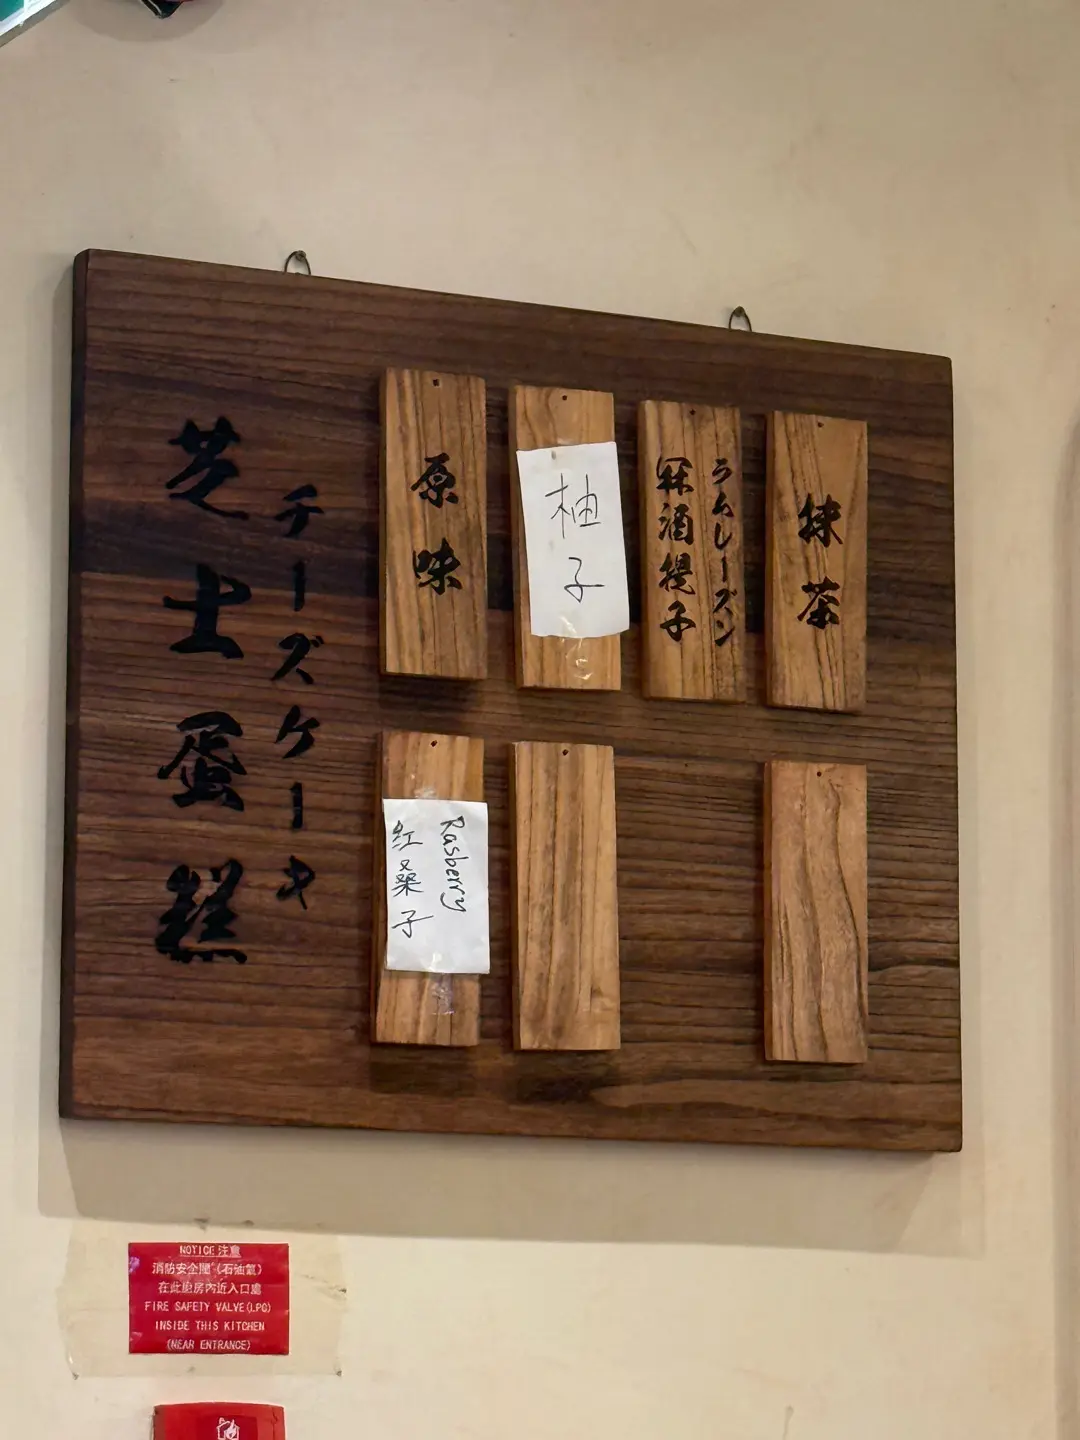 芝士蛋糕
チーズケーキ
原味
柚子
らむレーズン
冧酒提子
抹茶
Rasberry
红桑子
NOTICE 注意
消防安全閥（石油氣）
在此廚房內近入口處
FIRE SAFETY VALVE(LPG)
INSIDE THIS KITCHEN
(NEAR ENTRANCE)